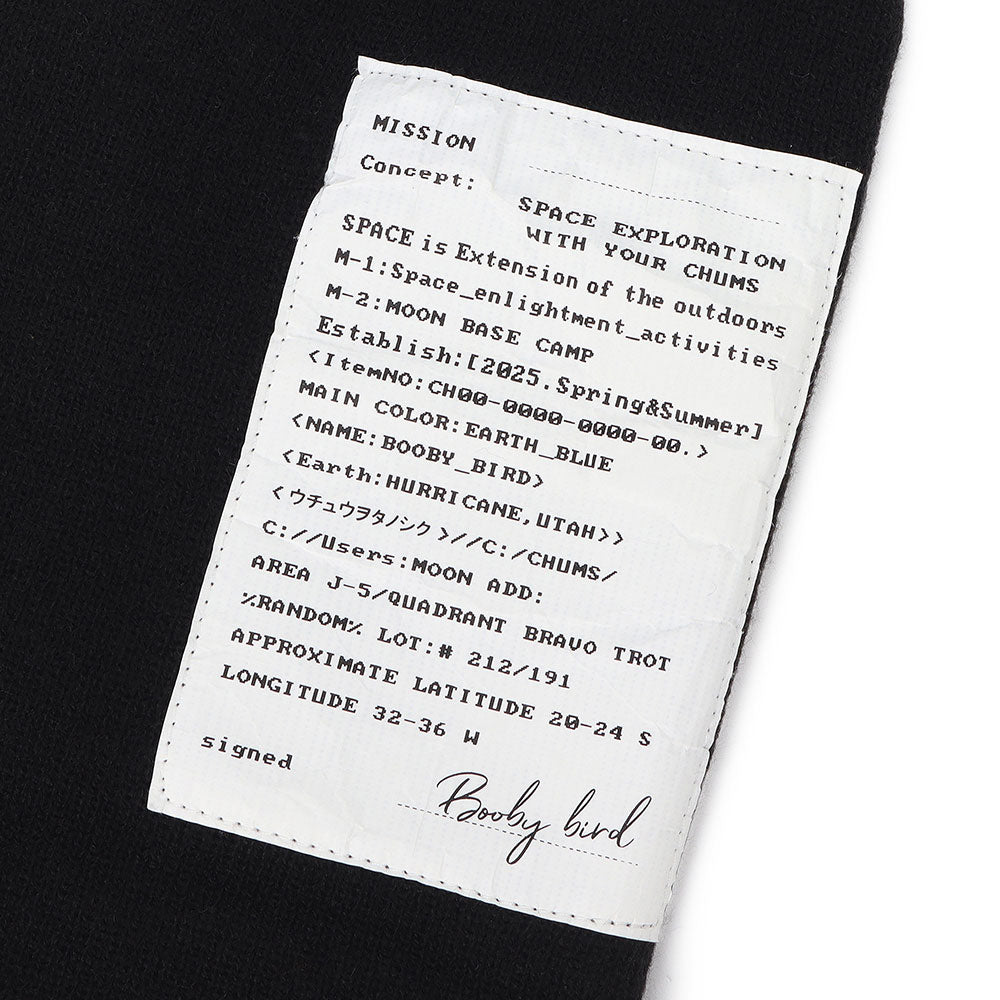 MISSION
Concept:
SPACE EXPLORATION
WITH YOUR CHUMS
SPACE is Extension of the outdoors
M-1:Space_enlightment_activities
M-2:MOON BASE CAMP
Establish:[2025.Spring&Summer]
<ItemNO:CH00-0000-0000-00.>
MAIN COLOR:EARTH_BLUE
<NAME:BOOBY_BIRD>
<Earth:HURRICANE,UTAH>>
<ウチュウヲタノシク>//C:/CHUMS/
C://Users:MOON ADD:
AREA J-5/QUADRANT BRAVO TROT
%RANDOM% LOT:# 212/191
APPROXIMATE LATITUDE 20-24 S
LONGITUDE 32-36 W
signed
Booby bird